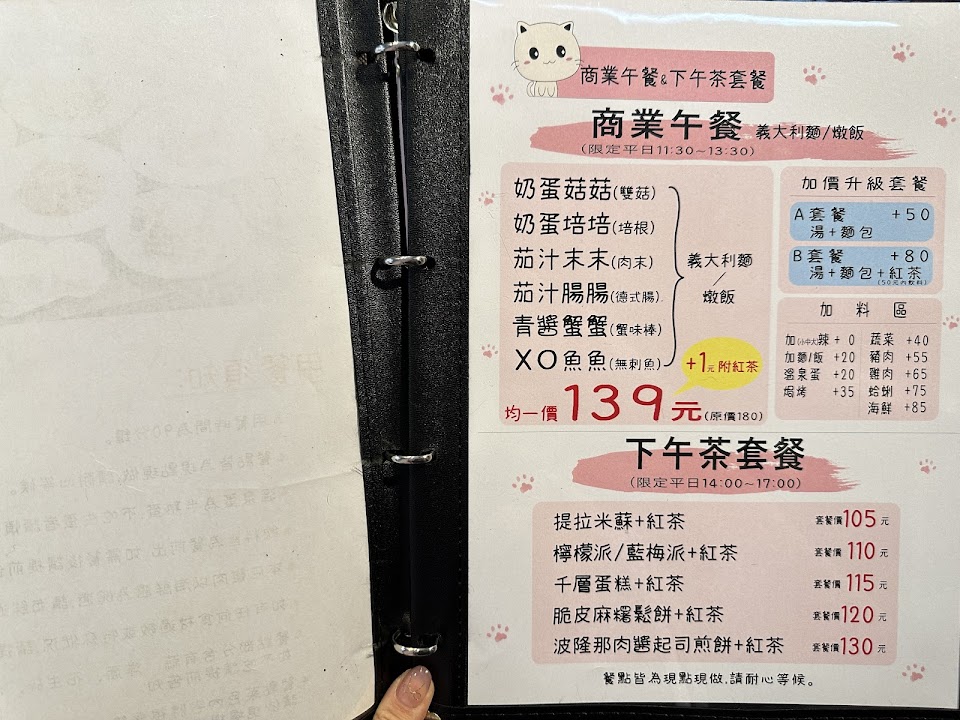 商業午餐&下午茶套餐
商業午餐 義大利麵/燉飯
(限定平日11:30~13:30)
奶蛋菇菇(雙菇)
奶蛋培培(培根)
茄汁末末(肉末)
茄汁腸腸(德式腸)
青醬蟹蟹(蟹味棒)
XO魚魚(無刺魚)
義大利麵
/
燉飯
+1元 附紅茶
均一價139元(原價180)
加價升級套餐
A套餐 +50
湯+麵包
B套餐 +80
湯+麵包+紅茶
(50元內飲料)
加料區
加(小中大)辣 + 0
加麵/飯 +20
溫泉蛋 +20
焗烤 +35
蔬菜 +40
豬肉 +55
雞肉 +65
蛤蜊 +75
海鮮 +85
下午茶套餐
(限定平日14:00~17:00)
提拉米蘇+紅茶 套餐價105元
檸檬派/藍梅派+紅茶 套餐價110元
千層蛋糕+紅茶 套餐價115元
脆皮麻糬鬆餅+紅茶 套餐價120元
波隆那肉醬起司煎餅+紅茶 套餐價130元
餐點皆為現點現做,請耐心等候。